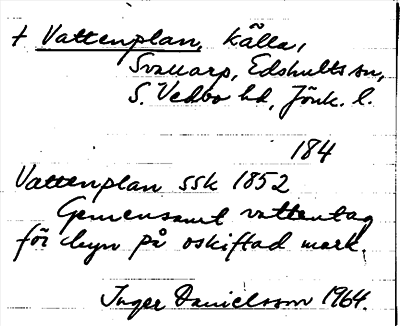 + Vattenplan, källa,
Svallarp, Edshults sn,
S. Vedbo hd, Jönk. l.
184
Vattenplan ssk 1852
Gemensamt vattentag
för byn på oskiftad mark.
Inger Danielsson 1964.